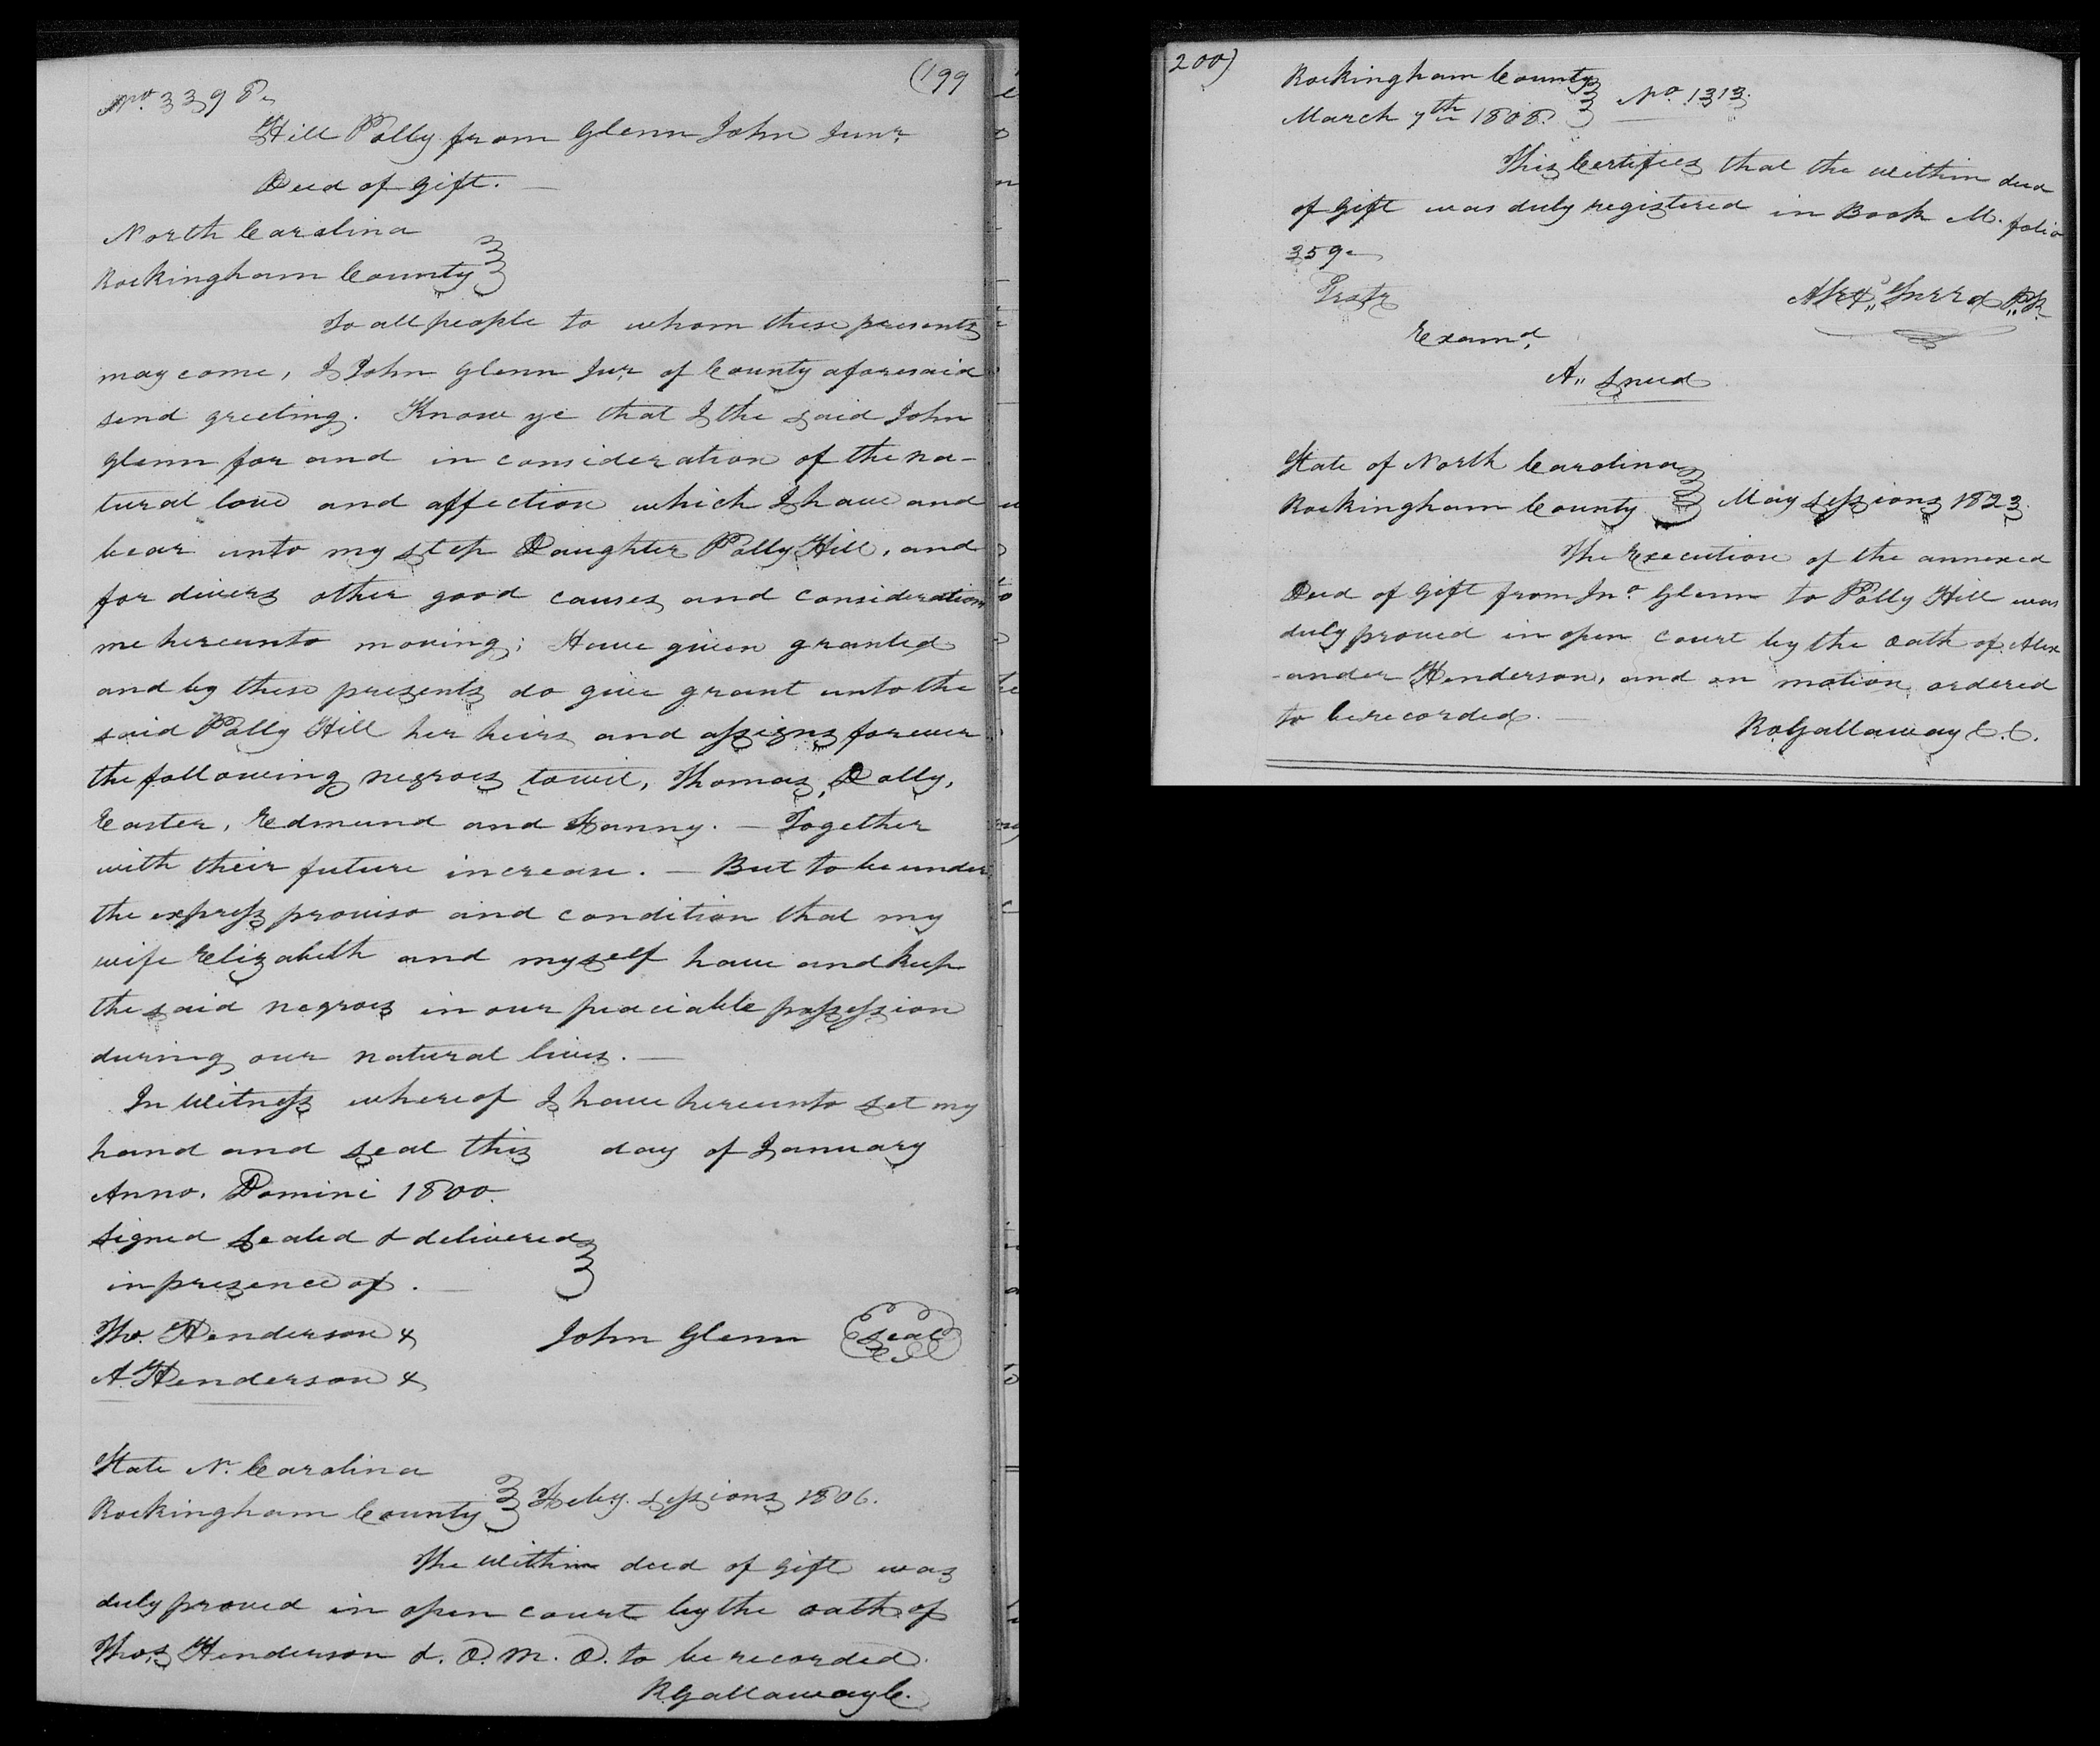 (199
No. 3398.
Hill Polly from Glenn John Junr.
Deed of gift. —
North Carolina
Rockingham County
To all people to whom these presents
may come, I John Glenn Jur. of County aforesaid
send greeting. Know ye that I the said John
Glenn for and in consideration of the na-
tural love and affection which I have and
bear unto my step Daughter Polly Hill, and
for divers other good causes and consideration
me hereunto moving; Have given granted
and by these presents do give grant unto the
said Polly Hill her heirs and assigns forever
the following negroes towit, Thomas, Dolly,
Easter, Edmund and Hanny. — Together
with their future increase. — But to be under
the express proviso and condition that my
wife Elizabeth and myself have and keep
the said negroes in our peaciable possession
during our natural lives. —
In Witness whereof I have hereunto set my
hand and seal this day of January
Anno. Domini 1800.
signed sealed & delivered
in presence of. —
Tho. Henderson & John Glenn seal
A. Henderson &
State N. Carolina
Rockingham County Feby. sessions 1806.
The within deed of gift was
duly proved in open court by the oath of
Thos Henderson &. O. M. O. to be recorded.
R Gallaway C.
200)
Rockingham County
March 7th 1808. No. 1313.
This Certifies that the within deed
of gift was duly registered in Book M. folio
359.
P. R.
Examd,
A,, Sneed
State of North Carolina
Rockingham County May sessions 1823.
The Execution of the annexed
Deed of Gift from Jno. Glenn to Polly Hill was
duly proved in open court by the oath of Alex
-ander Henderson, and on motion ordered
to be recorded. —
Ro Gallaway C. C.